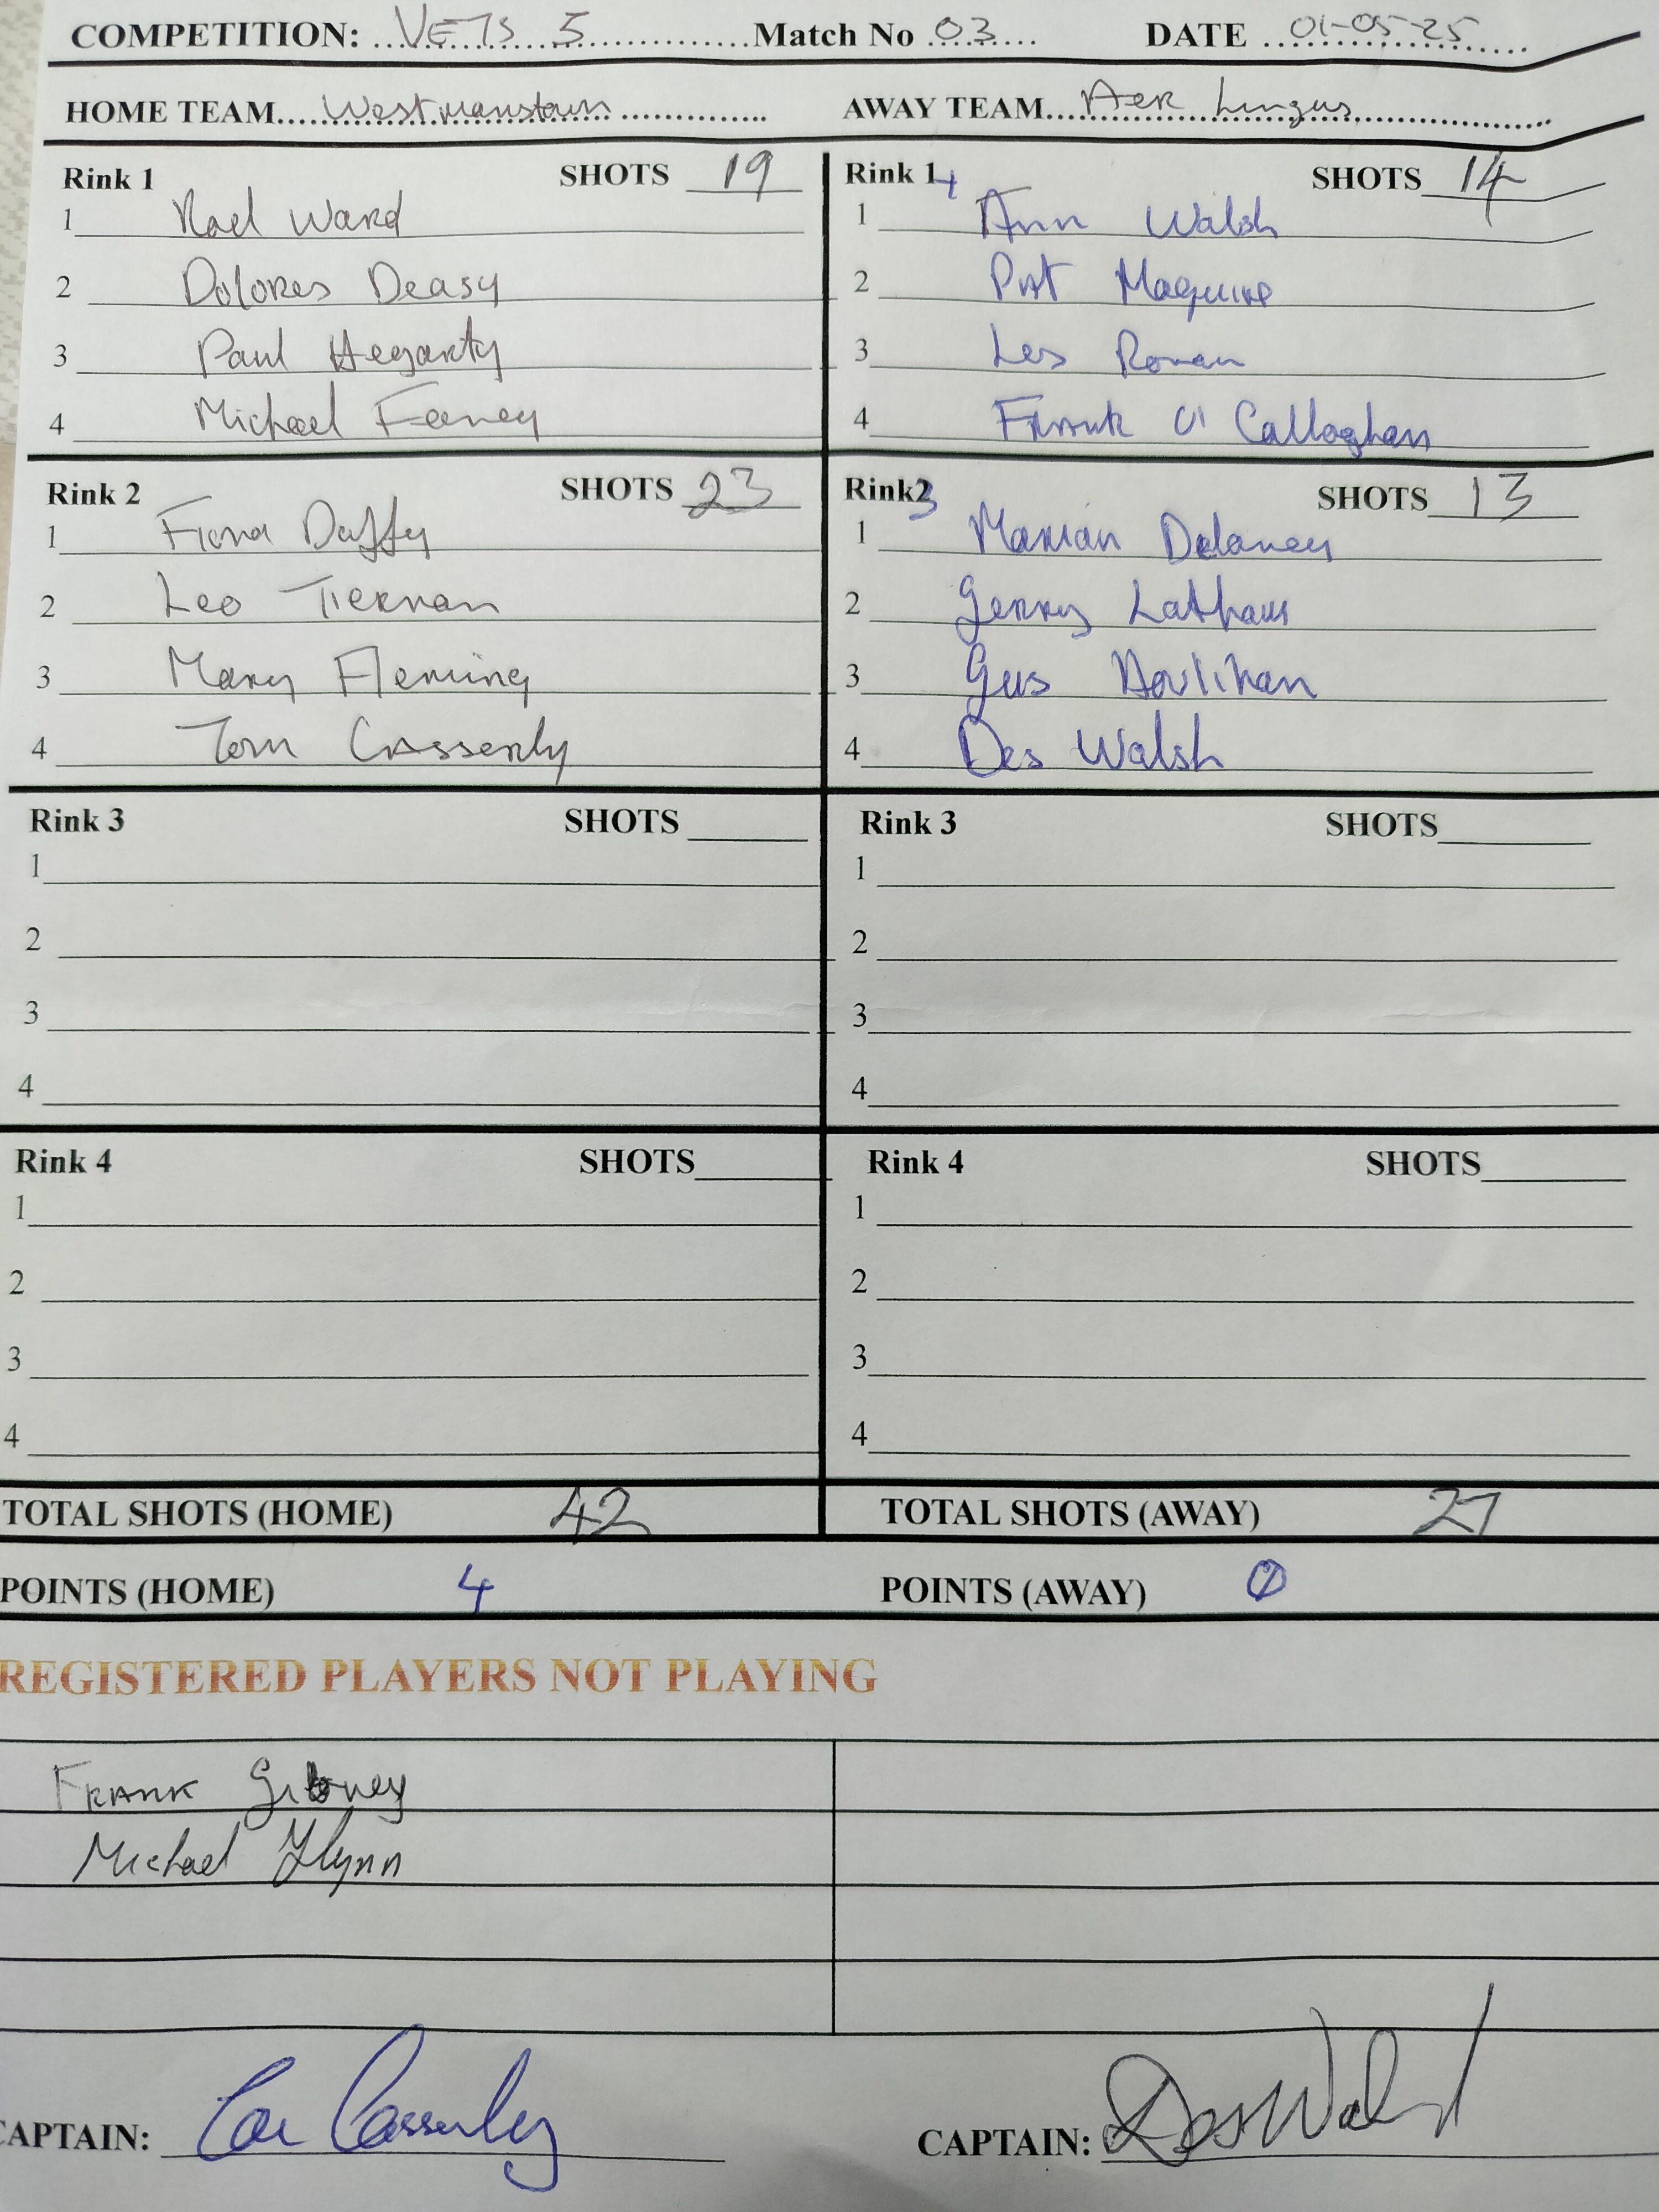 COMPETITION: VETS 5 Match No 03 DATE 01-05-25
HOME TEAM Westmanstown AWAY TEAM Aer Lingus
Rink 1 SHOTS 19
1 Noel Ward
2 Dolores Deasy
3 Paul Hegarty
4 Michael Feeney
Rink 1 4 SHOTS 14
1 Ann Walsh
2 Pat Maguire
3 Les Ronan
4 Frank O'Callaghan
Rink 2 SHOTS 23
1 Fiona Duffy
2 Leo Tiernan
3 Mary Fleming
4 Tom Casserly
Rink2 3 SHOTS 13
1 Marian Delaney
2 Gerry Latham
3 Gus Houlihan
4 Des Walsh
Rink 3 SHOTS
1
2
3
4
Rink 3 SHOTS
1
2
3
4
Rink 4 SHOTS
1
2
3
4
Rink 4 SHOTS
1
2
3
4
TOTAL SHOTS (HOME) 42 TOTAL SHOTS (AWAY) 27
POINTS (HOME) 4 POINTS (AWAY) 0
REGISTERED PLAYERS NOT PLAYING
FRANK Gibney
Michael Flynn
CAPTAIN: Casserly CAPTAIN: Des Walsh